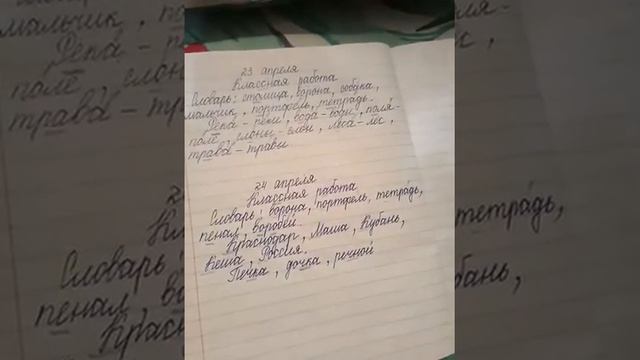 23 апреля
Классная работа
Словарь: столица, ворона, собака,
мальчик, портфель, тетрадь.
вода - воды, поля -
поле, слоны - слон, леса - лес,
трава - травы
24 апреля
Классная работа
Словарь: ворона, портфель, тетрадь,
пенал, воробей.
Краснодар, Маша, Кубань,
Кеша, Россия.
Печка, дочка, речной